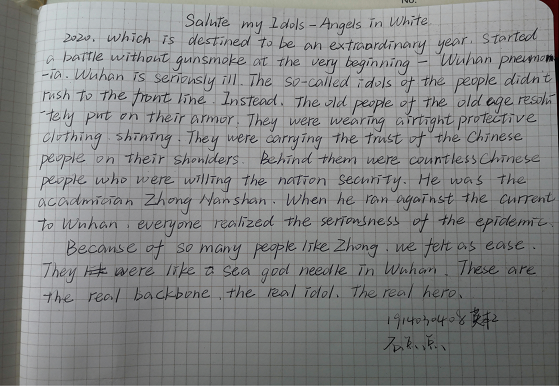 No.
Salute my Idols - Angels in White.
2020. which is destined to be an extraordinary year. Started
a battle without gunsmoke at the very beginning - Wuhan pneumon
-ia. Wuhan is seriously ill. The so-called idols of the people didn't
rush to the front line. Instead. The old people of the old age resolu-
-tely put on their armor. They were wearing airtight protective
clothing shining. They were carrying the trust of the Chinese
people on their shoulders. Behind them were countless Chinese
people who were willing the nation security. He was the
acadmician Zhong Nanshan. When he ran against the current
to Wuhan. everyone realized the seriousness of the epidemic.
Because of so many people like Zhong. we felt as ease.
They were like a sea god needle in Wuhan. These are
the real backbone. the real idol. The real hero.
石点点